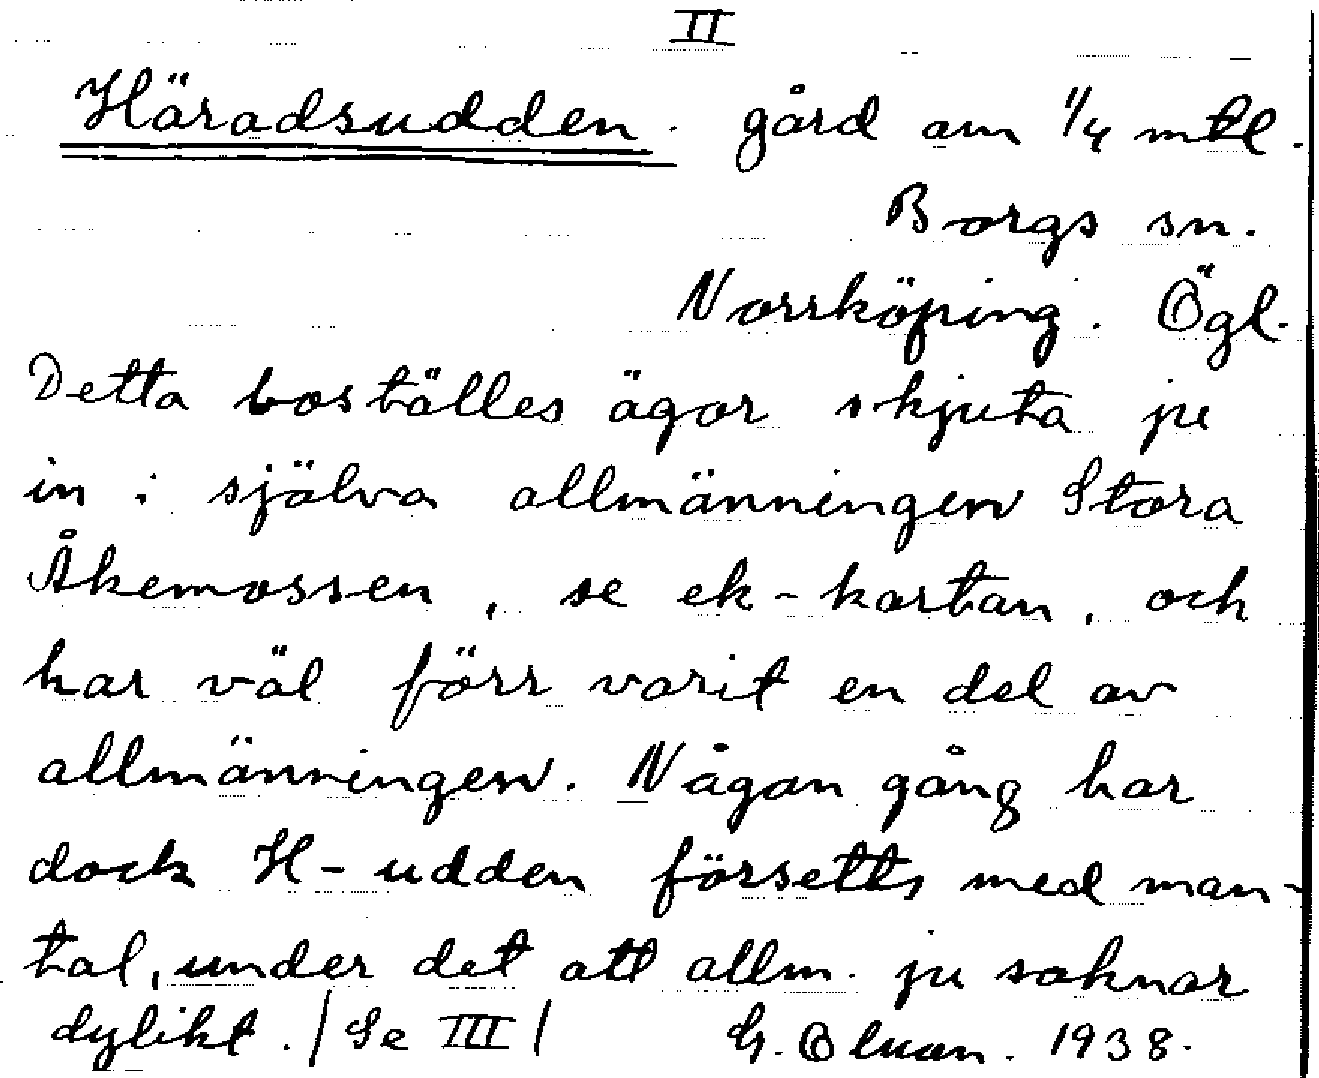 II
Häradsudden. gård om 1/4 mtl.
Borgs sn.
Norrköping. Ögl.
Detta boställes ägor skjuta ju
in i själva allmänningen Stora
Åkemossen, se ek-kartan, och
har väl förr varit en del av
allmänningen. Någon gång har
dock H-udden försetts med man-
tal, under det att allm. ju saknar
dylikt. /Se III/ G. Olsson. 1938.